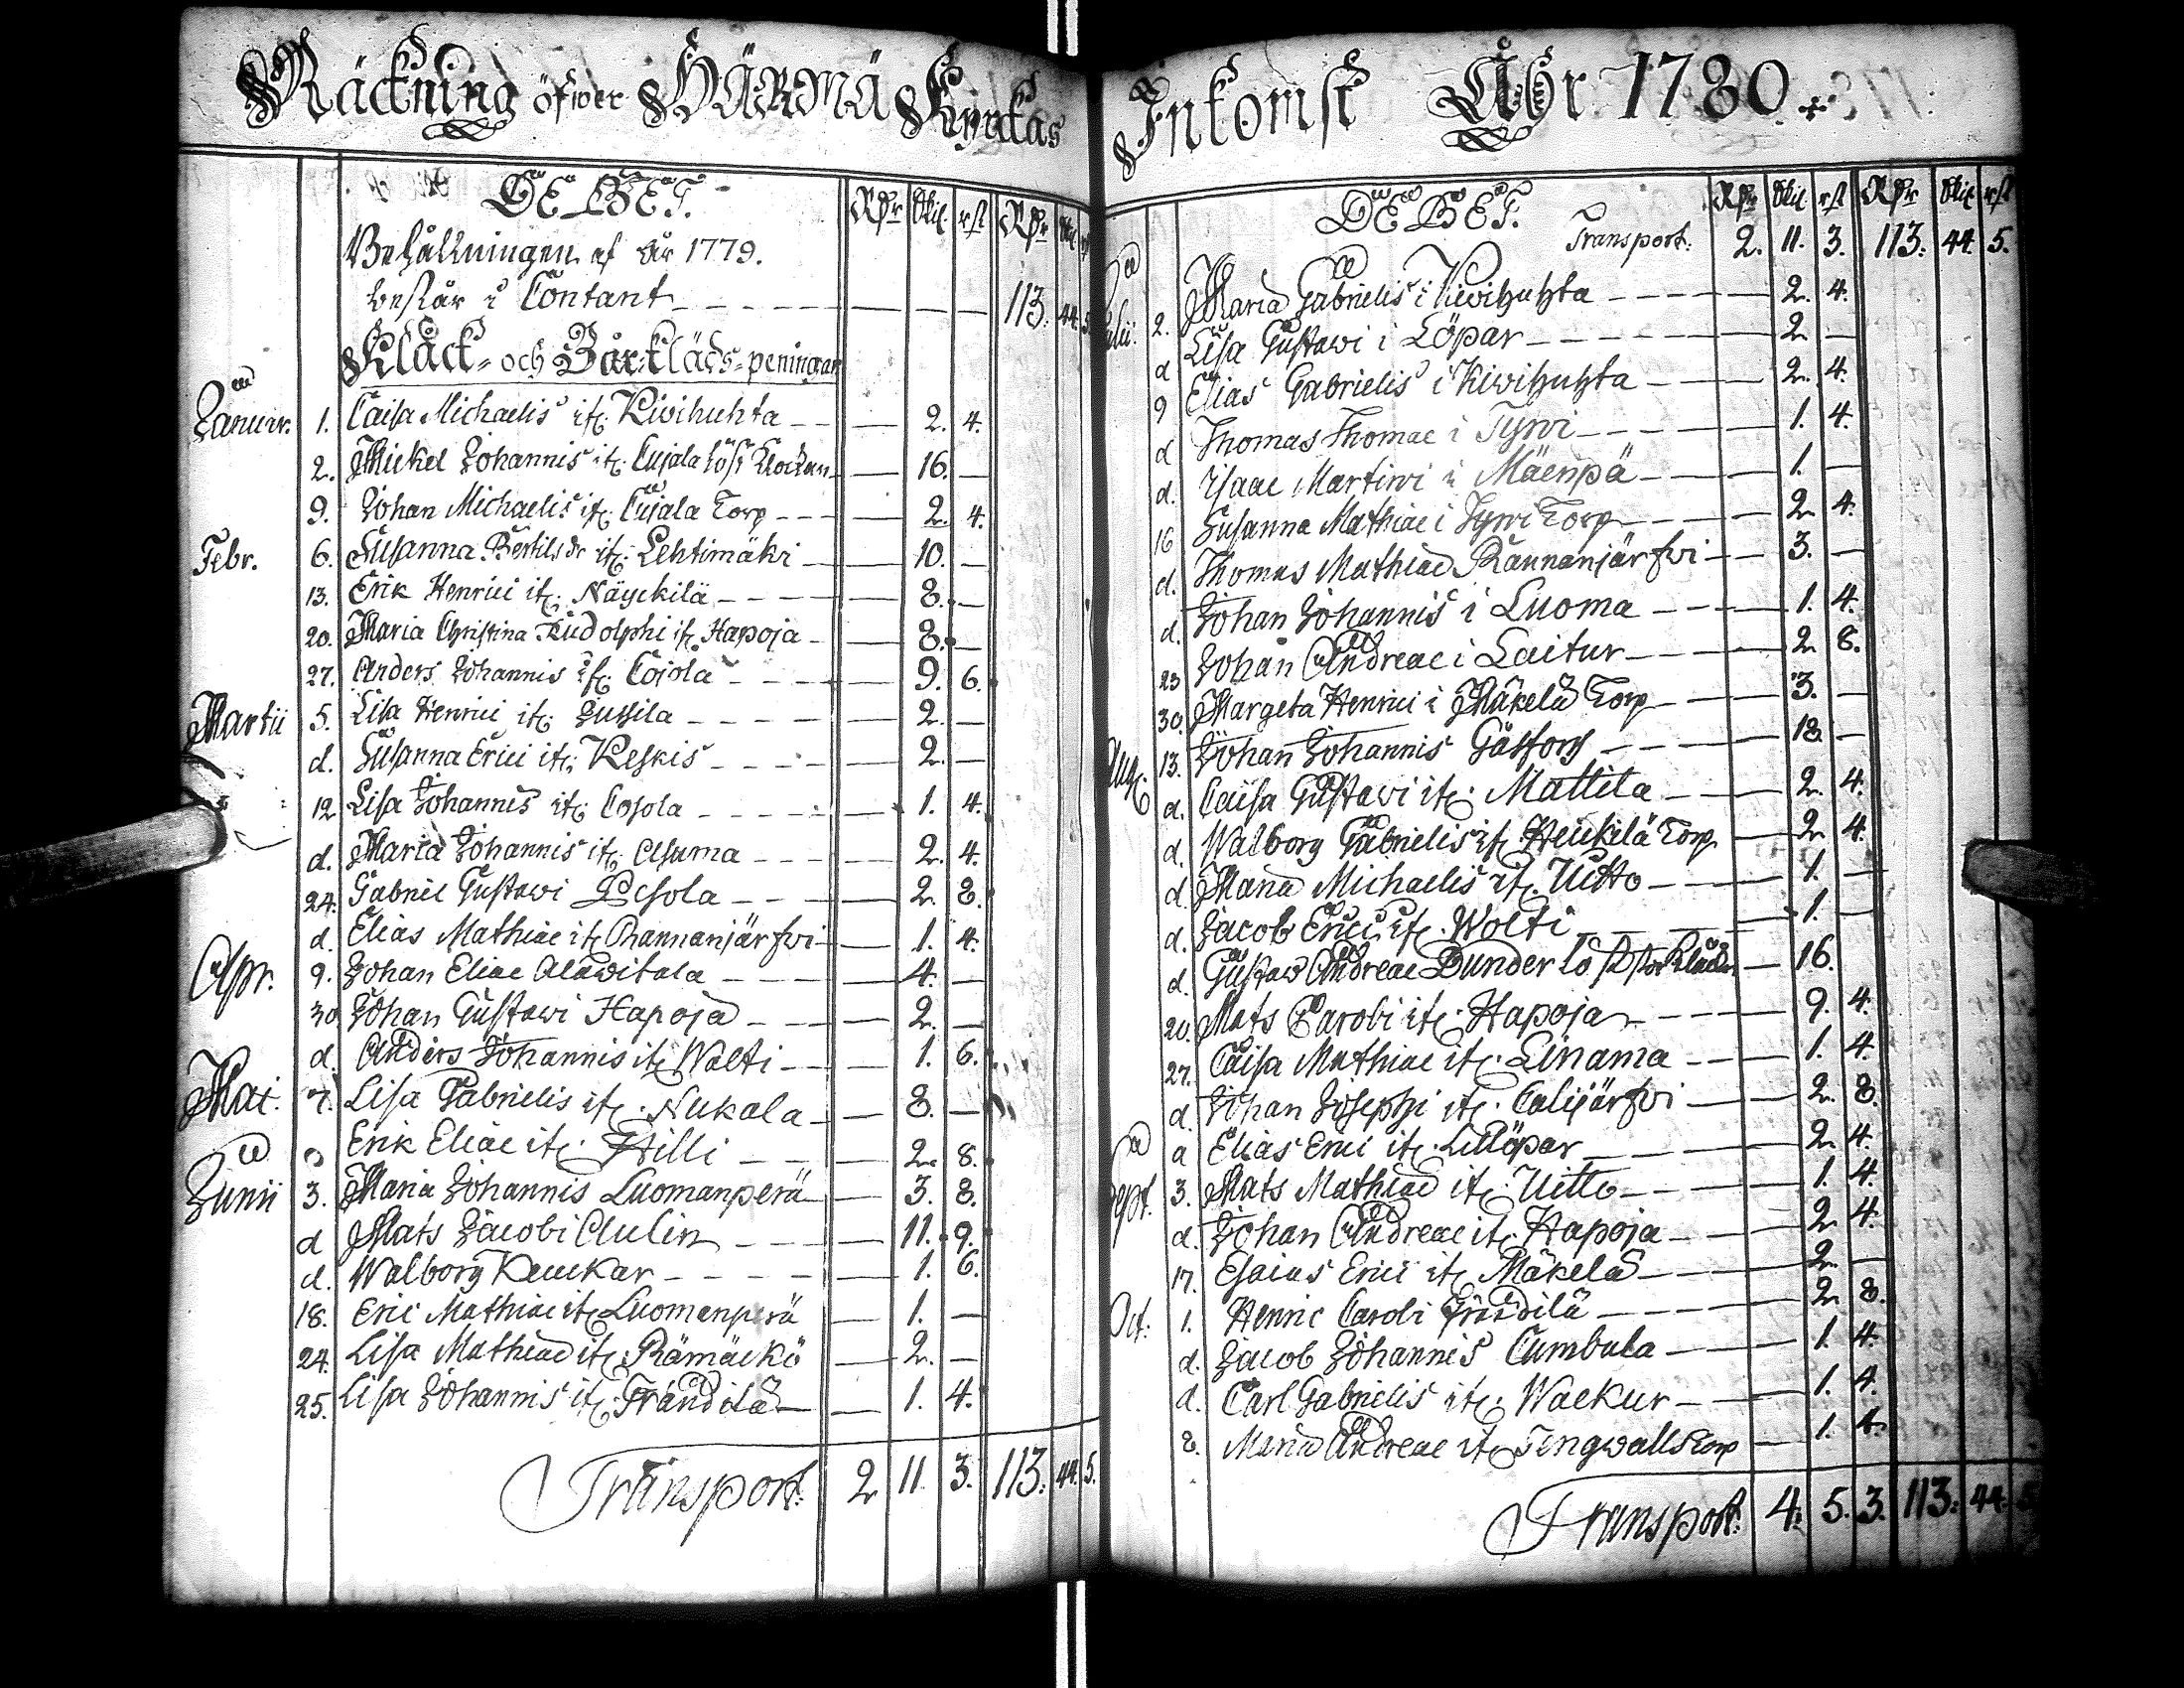 Räckning öfwer HÄRMÄ Kyrckas
DEBET. Rdr Skil. rst Rdr Skil rst
Behållningen af År 1779.
består i Contant 113. 44. 5.
Klåck- och Bårkläds-peningar
Januar. 1. Caisa Michaelis it: Kiwihuhta 2. 4.
2. Mickel Johannis it: Cujala löst Klockan 16.
9. Johan Michaelis it: Cujala Torp 2. 4.
Febr. 6. Susanna Bertils dr it: Lehtimäki 10.
13. Erik Henrici it: Näyckilä 8.
20. Maria Christina Rudolphi it: Hapoja 8.
27. Anders Johannis it: Cojola 9. 6.
Martii 5. Lisa Henrici it: Jussila 2.
d. Susanna Erici it: Keskis 2.
12 Lisa Johannis it: Cosola 1. 4.
d. Maria Johannis it: Asuma 2. 4.
24. Gabriel Gustawi Pesola 2. 8.
d. Elias Mathiae it: Rannanjärfwi 1. 4.
Apr. 9. Johan Eliae Alawitala 4.
30 Johan Gustawi Hapoja 2.
d. Anders Johannis it: Wolti 1. 6.
Mai. 7. Lisa Gabrielis it: Nukala 8.
Erik Eliae it: Hilli 2. 8.
Junii 3. Maria Johannis Luomanperä 3. 8.
d Mats Jacobi Aulin 11. 9.
d. Walborg Kauckar 1. 6.
18. Eric Mathiae it: Luomanperä 1.
24. Lisa Mathiae it: Rämäckö 2.
25. Lisa Johannis it: Frändilä 1. 4.
Transport: 2 11. 3. 113. 44. 5.
Inkomst Åhr 1780.
DEBET. Rdr Skil rst Rdr Skil rst
Transport: 2. 11. 3. 113. 44. 5.
Julii. 2. Maria Gabrielis i Kiwihuhta 2. 4.
d Lisa Gustawi i Löpar 2.
9 Elias Gabrielis i Kiwihuhta 2. 4.
d Thomas Thomae i Tyrwi 1. 4.
d. Isaac Martini i Mäenpä 1.
16 Susanna Mathiae i Tyrwi Torp 2. 4.
d. Thomas Mathiae Rannanjärfwi 3.
d. Johan Johannis i Luoma 1. 4.
23 Johan Andreae i Laitur 2. 8.
30. Margeta Henrici i Mäkelä Torp 3.
Aug. 13. Johan Johannis Gåsfors 18.
d. Caisa Gustawi it: Mattila 2. 4.
d. Walborg Gabrielis it: Heickilä Torp 2. 4.
d. Maria Michaelis it: Uitto 1.
d. Jacob Erici it: Wolti 1.
d. Gustaw Andreae Dunder 16.
20. Mats Caroli it: Hapoja 9. 4.
27. Caisa Mathiae it: Linama 1. 4.
d. Johan Josephi it: Calijärfwi 2. 8.
a Elias Erici it: Lillöpar 2. 4.
Sept. 3. Mats Mathiae it: Uitto 1. 4.
d. Johan Andreae it: Hapoja 2 4.
17. Esaias Erici it: Mäkelä 2.
Oct: 1. Henric Caroli Frändilä 2. 8.
d. Jacob Johannis Cumbula 1. 4.
d. Carl Gabrielis it: Waekur 1. 4.
8. Maria Andreae it: Tengwalls Torp 1. 4.
Transport: 4. 5. 3. 113. 44. 5